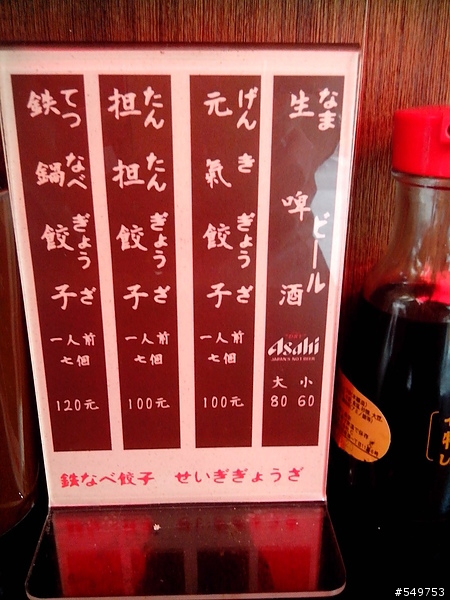 生啤酒
なまビール
Asahi
JAPAN'S NO.1 BEER
大 小
80 60
元氣餃子
げんきぎょうざ
一人前
七個
100元
担担餃子
たんたんぎょうざ
一人前
七個
100元
鉄鍋餃子
てつなべぎょうざ
一人前
七個
120元
鉄なべ餃子 せいぎぎょうざ
#549753